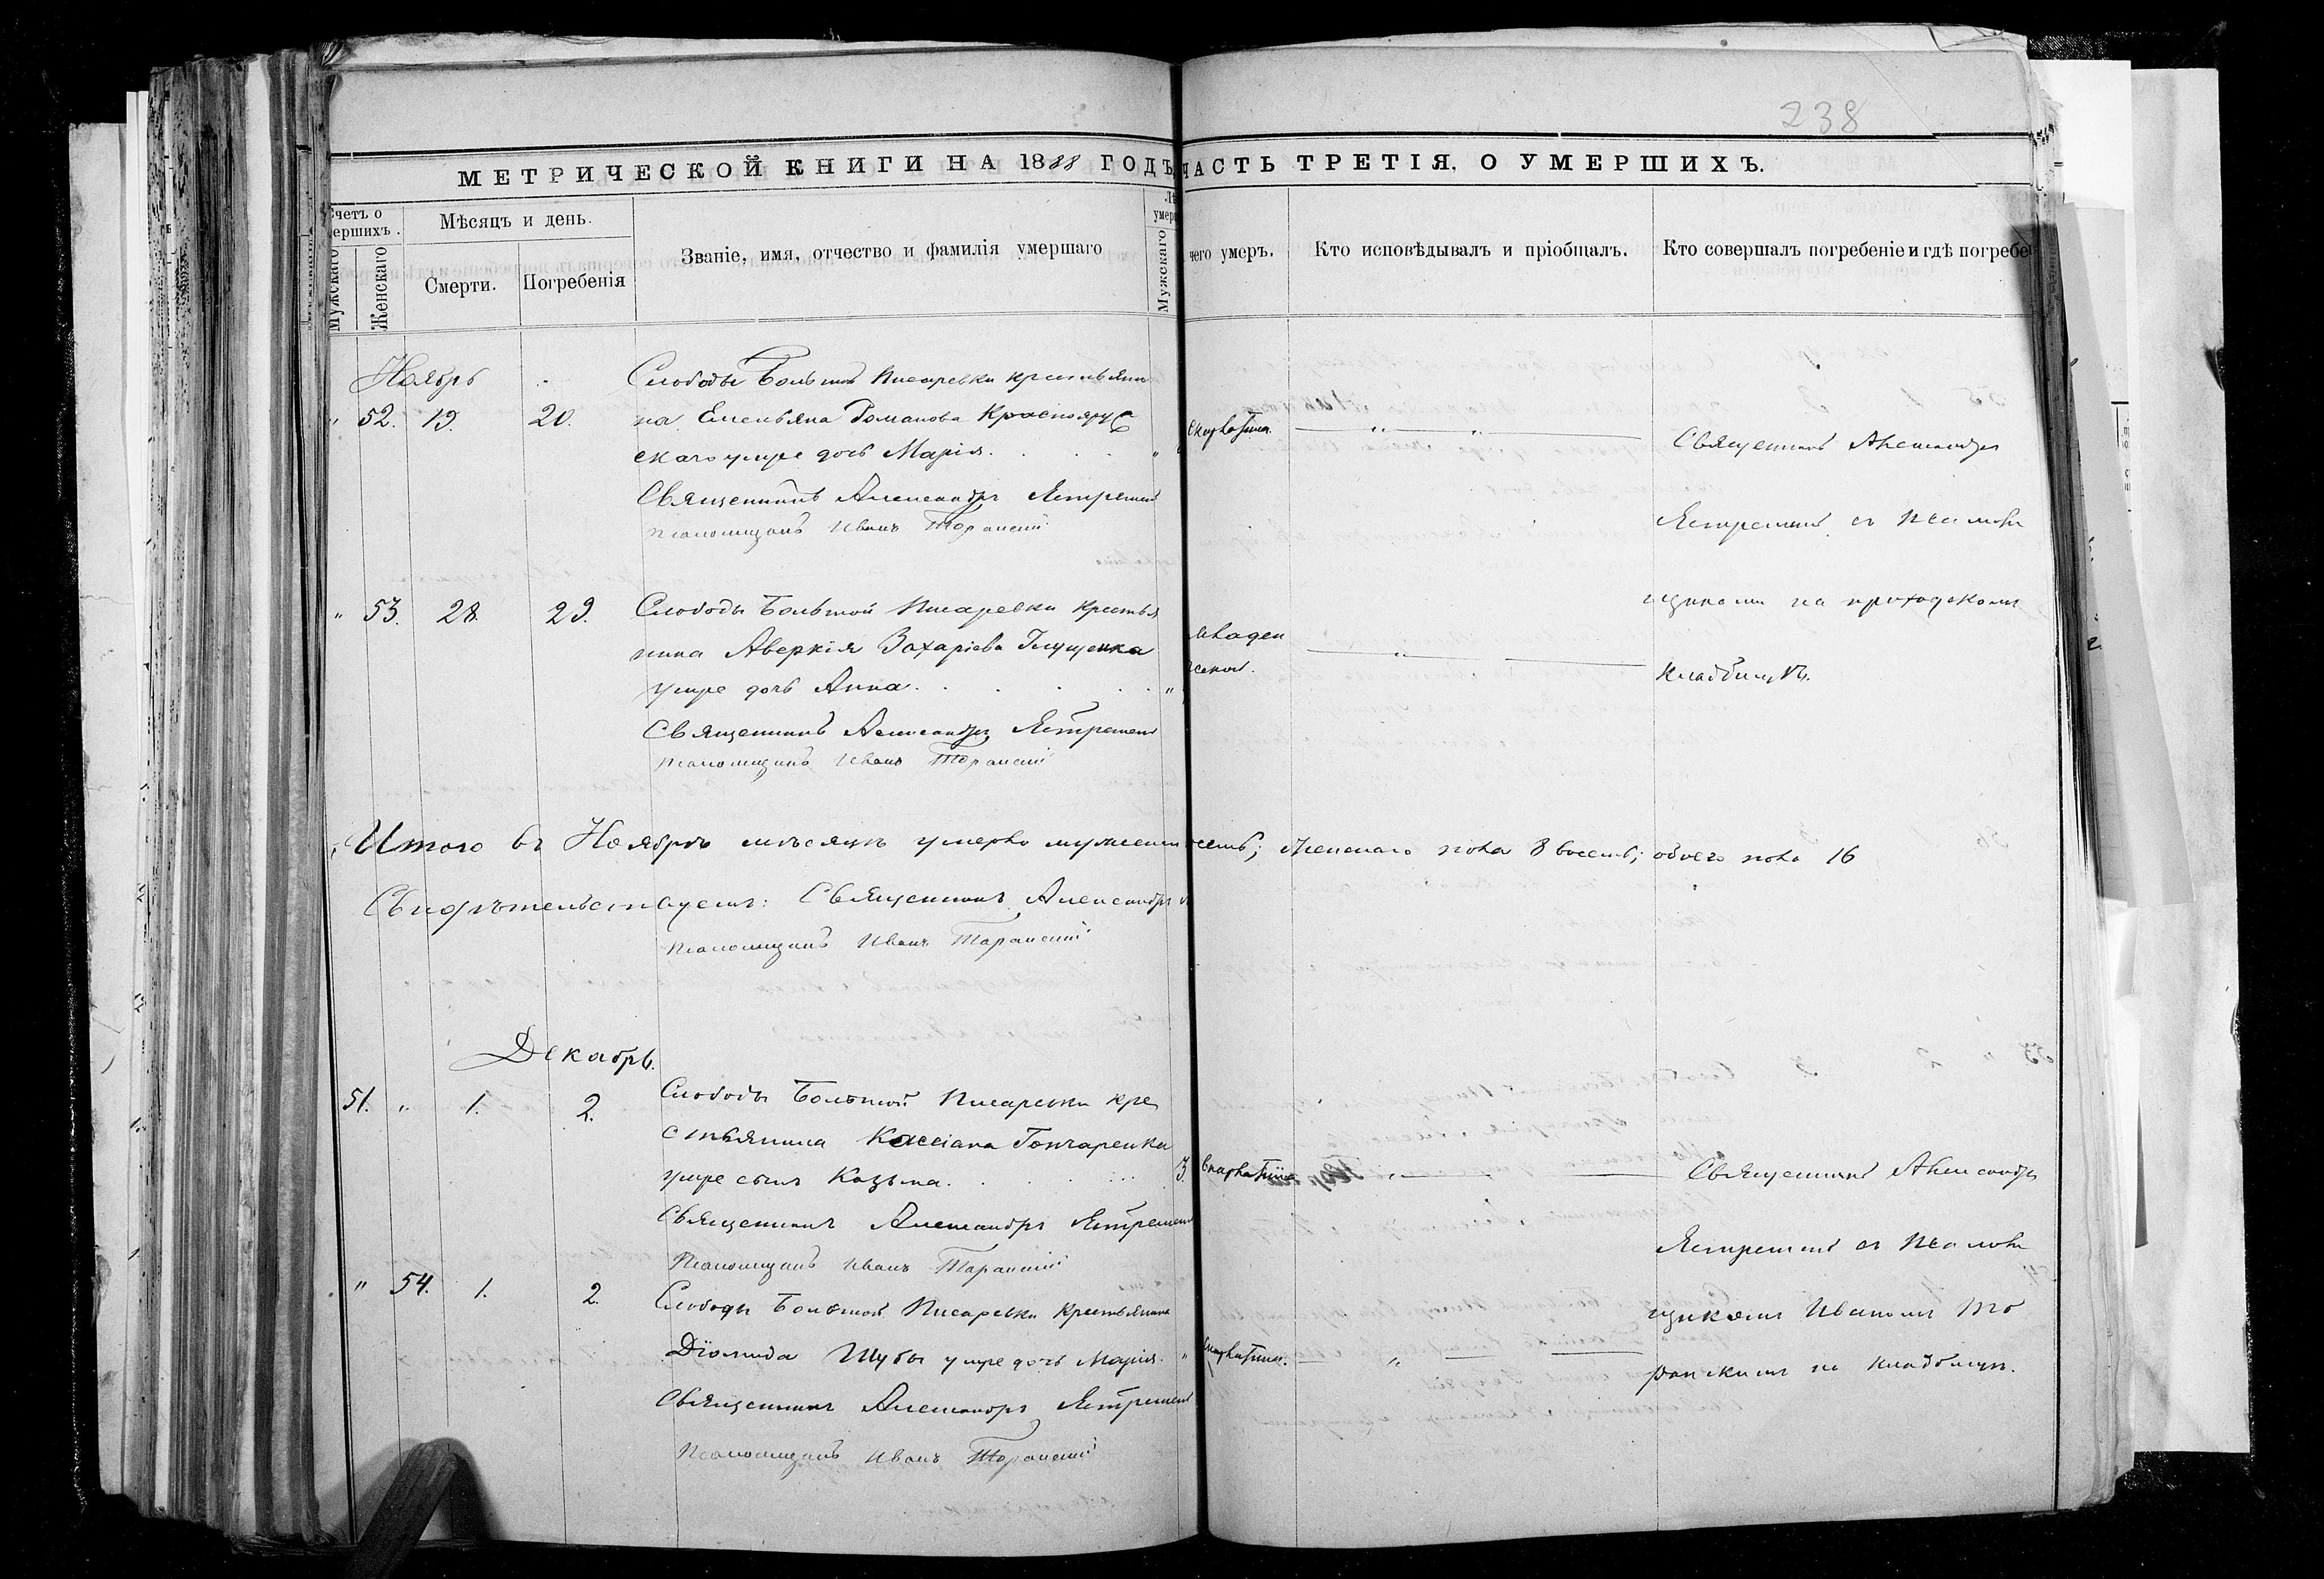 238
МЕТРИЧЕСКОЙ КНИГИ НА 1888 ГОДЪ
ЧАСТЬ ТРЕТІЯ. О УМЕРШИХЪ.
Счетъ о
умершихъ.
Мужскаго
Женскаго
Мѣсяцъ и день.
Смерти.
Погребенія
Званіе, имя, отчество и фамилія умершаго
Мужскаго
чего умеръ.
Кто исповѣдывалъ и пріобщалъ.
Кто совершалъ погребеніе и гдѣ погребе
Ноябрь
Слободы Большой Писаревки крестьяни
" 52. 19. 20. на Емельяна Романова Краснояруж
скаго умре дочь Марія. "
Скарлатина.
Священникъ Александръ Ястремск
Псаломщикъ Иванъ Торанскій
Священникъ Александръ
Ястремскій съ псалом
щикомъ на приходскомъ
кладбищѣ.
" 53. 28. 29. Слободы Большой Писаревки крестья
нина Аверкія Захаріева Глущенка
умре дочь Анна. "
младен
ческой.
Священникъ Александръ Ястремск
Псаломщикъ Иванъ Торанскій
Итого въ Ноябрѣ мѣсяцѣ умерло мужеск восемь; женскаго пола 8 восемь; обоего пола 16
Свидѣтельствуемъ: Священникъ Александръ
Псаломщикъ Иванъ Таранскій
Декабрь.
51. " 1. 2. Слободы Большой Писаревки кре
стьянина Кассіана Гончаренка
умре сынъ Козьма. 3.
Скарлатина
Священникъ Александръ Ястремск
Псаломщикъ Иванъ Таранскій
Священникъ Александръ
Ястремскій съ псалом
щикомъ Иваномъ То
ранскимъ на кладбищѣ.
" 54. 1. 2. Слободы Большой Писаревки крестьянина
Діомида Шубы умре дочь Марія. "
Скарлатина.
Священникъ Александръ Ястремск
Псаломщикъ Иванъ Торанскій